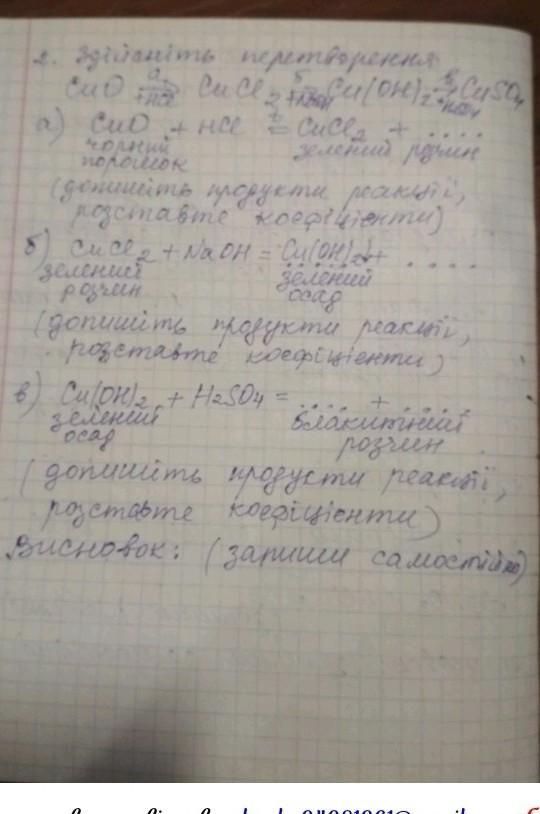 2. Здійсніть перетворення
CuO а→ +HCl CuCl2 б→ +NaOH Cu(OH)2 в→ +H2SO4 CuSO4
а) CuO + HCl t= CuCl2 + ....
чорний порошок зелений розчин
(допишіть продукти реакції,
розставте коефіцієнти)
б) CuCl2 + NaOH = Cu(OH)2↓ + ....
зелений розчин зелений осад
(допишіть продукти реакції,
розставте коефіцієнти)
в) Cu(OH)2 + H2SO4 = .... + ....
зелений осад блакитний розчин
(допишіть продукти реакції,
розставте коефіцієнти)
Висновок: (запиши самостійно)